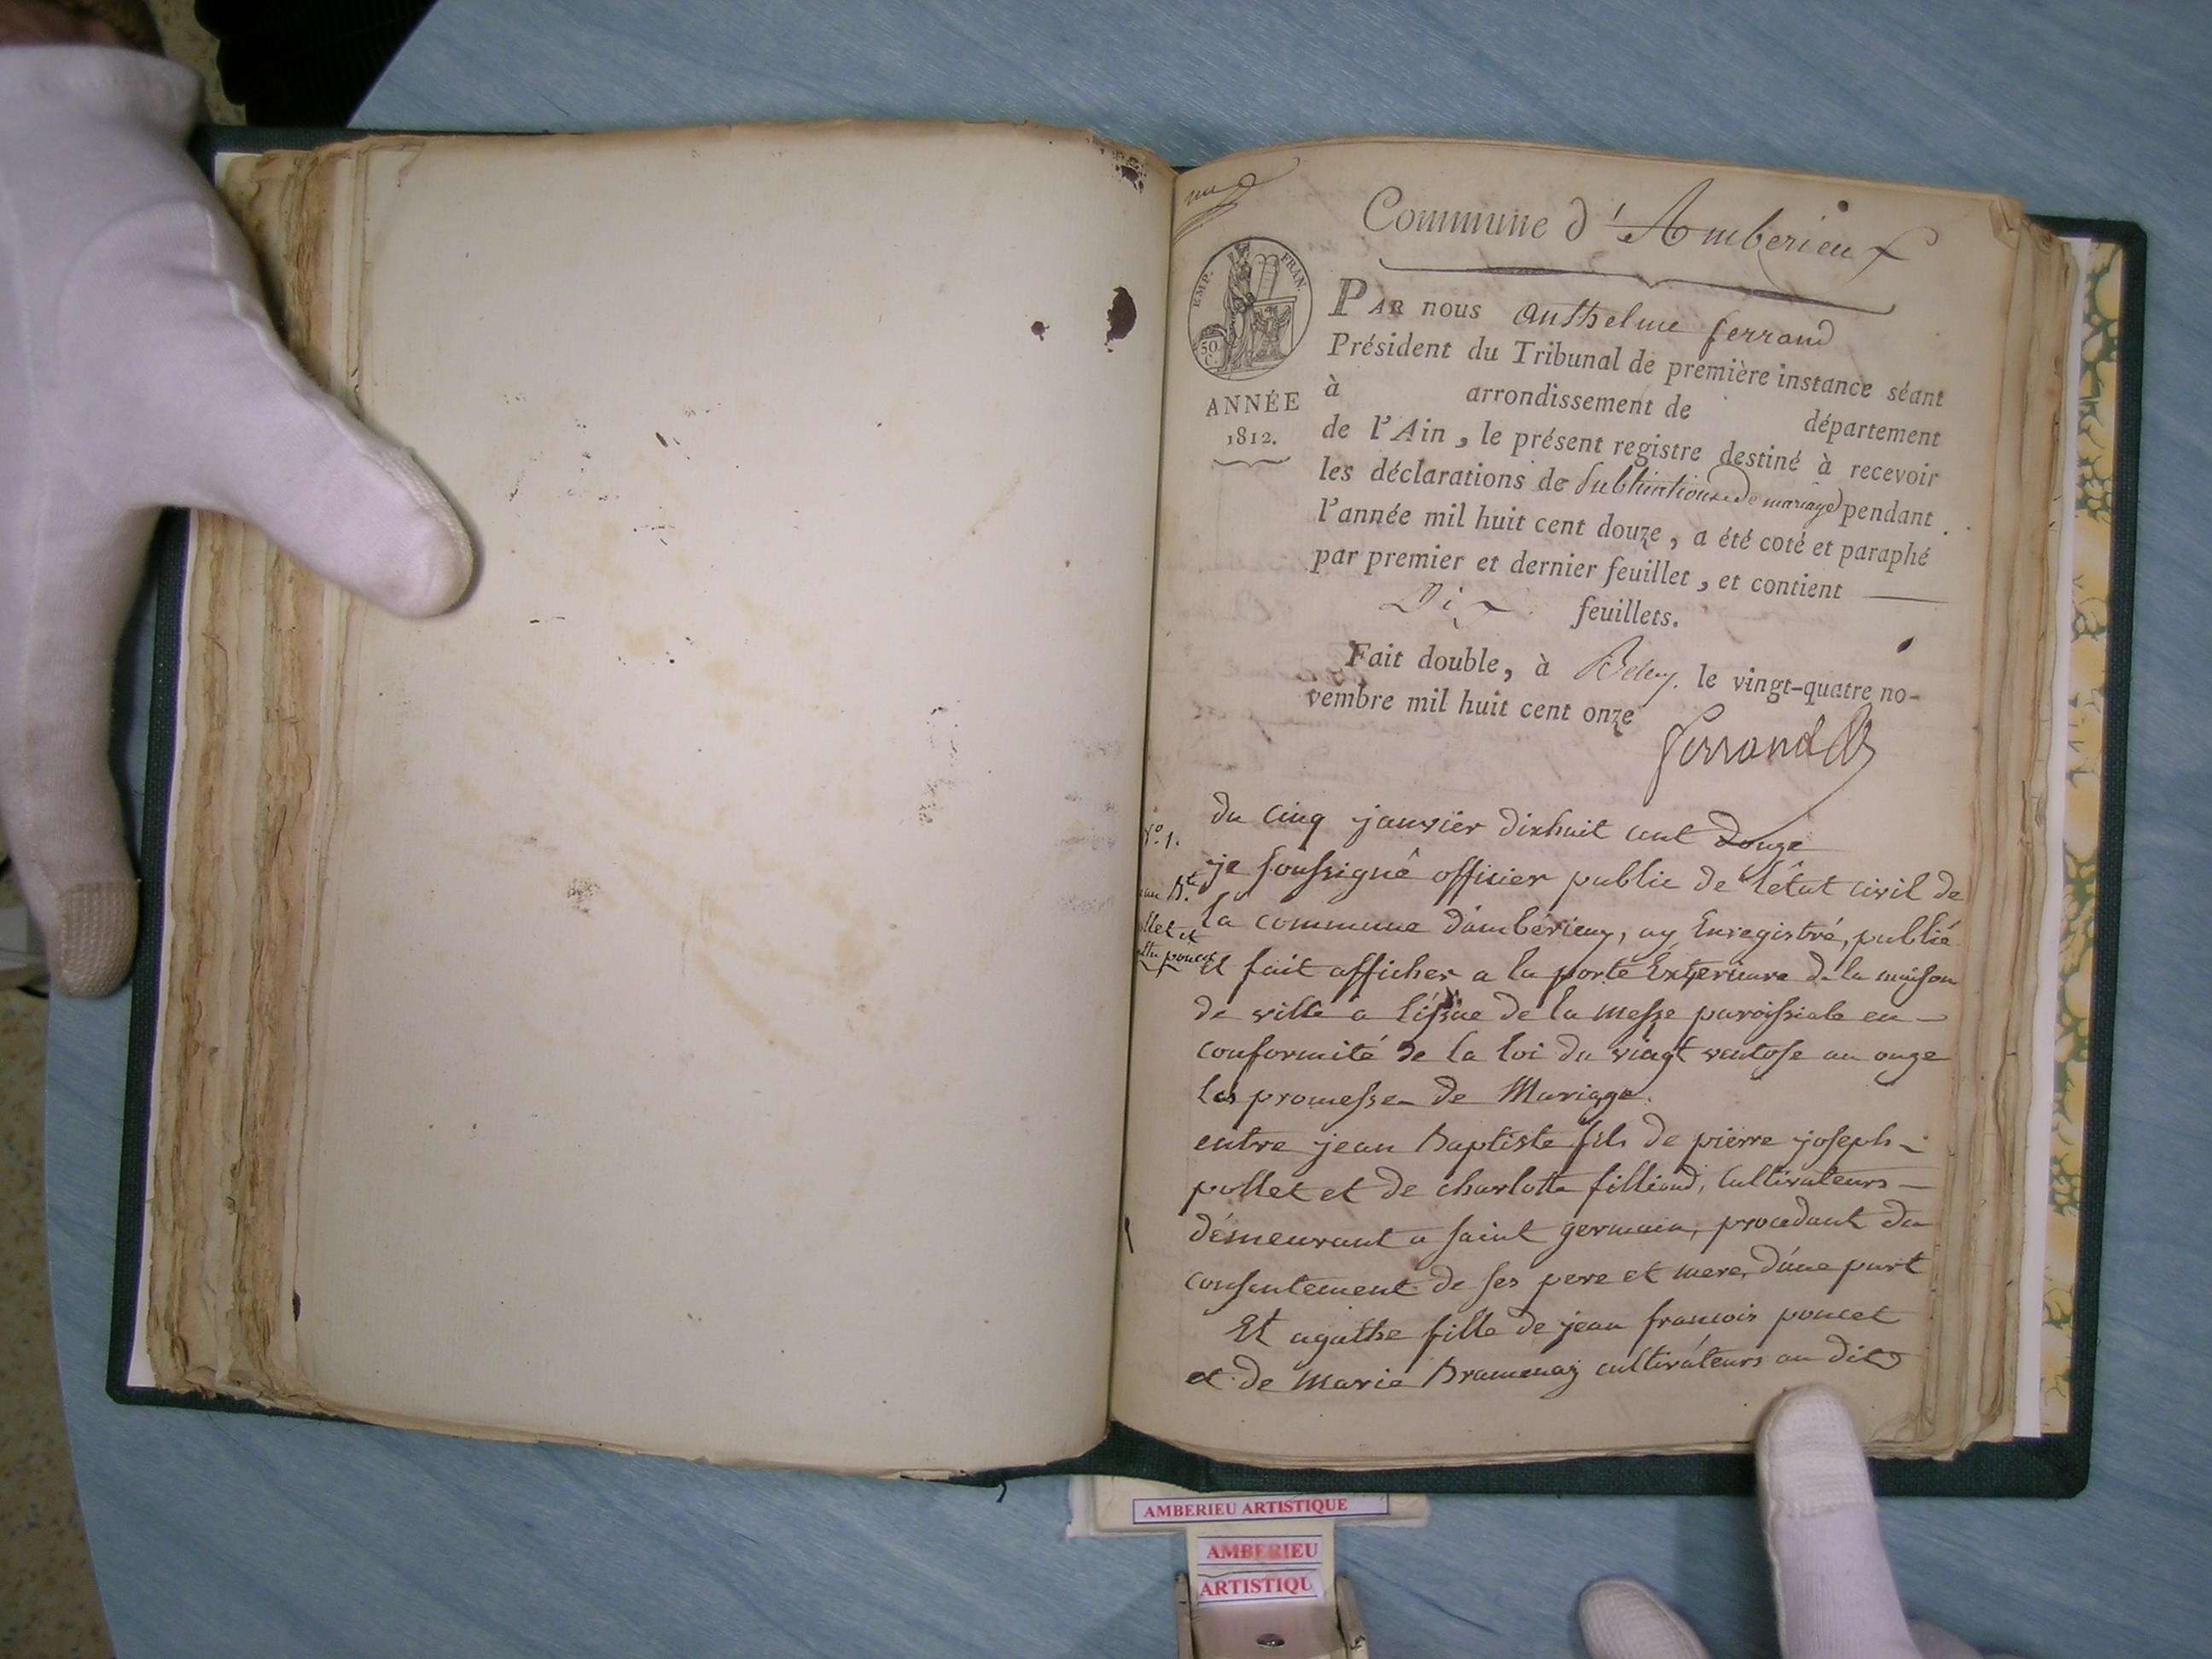 Commune d'Amberieux
EMP. FRAN.
50
C.
ANNÉE
1812.
PAR nous anthelme ferrand
Président du Tribunal de première instance séant
à arrondissement de département
de l'Ain, le présent registre destiné à recevoir
les déclarations de publications de mariage pendant
l'année mil huit cent douze, a été coté et paraphé
par premier et dernier feuillet, et contient
Dix feuillets.
Fait double, à Belley, le vingt-quatre no-
vembre mil huit cent onze
Ferrand
N.º 1.
du cinq janvier dixhuit cent douze
je soussigné officier public de l'êtat civil de
la commune d'ambérieux, ay Enregistré, publié
et fait afficher a la porte Exterieure de la maison
de ville a l'issue de la messe paroissiale en
conformité de la loi du vingt ventose an onze
les promesse de Mariage.
entre jean Baptiste fils de pierre joseph
pollet et de charlotte filliond, Cultivateurs
démeurant a saint germain, procedant du
consentement de ses pere et mere, d'une part
Et agathe fille de jean francois poncet
et de Marie Bramenaz cultivateurs au dit
AMBERIEU ARTISTIQUE
AMBERIEU
ARTISTIQU